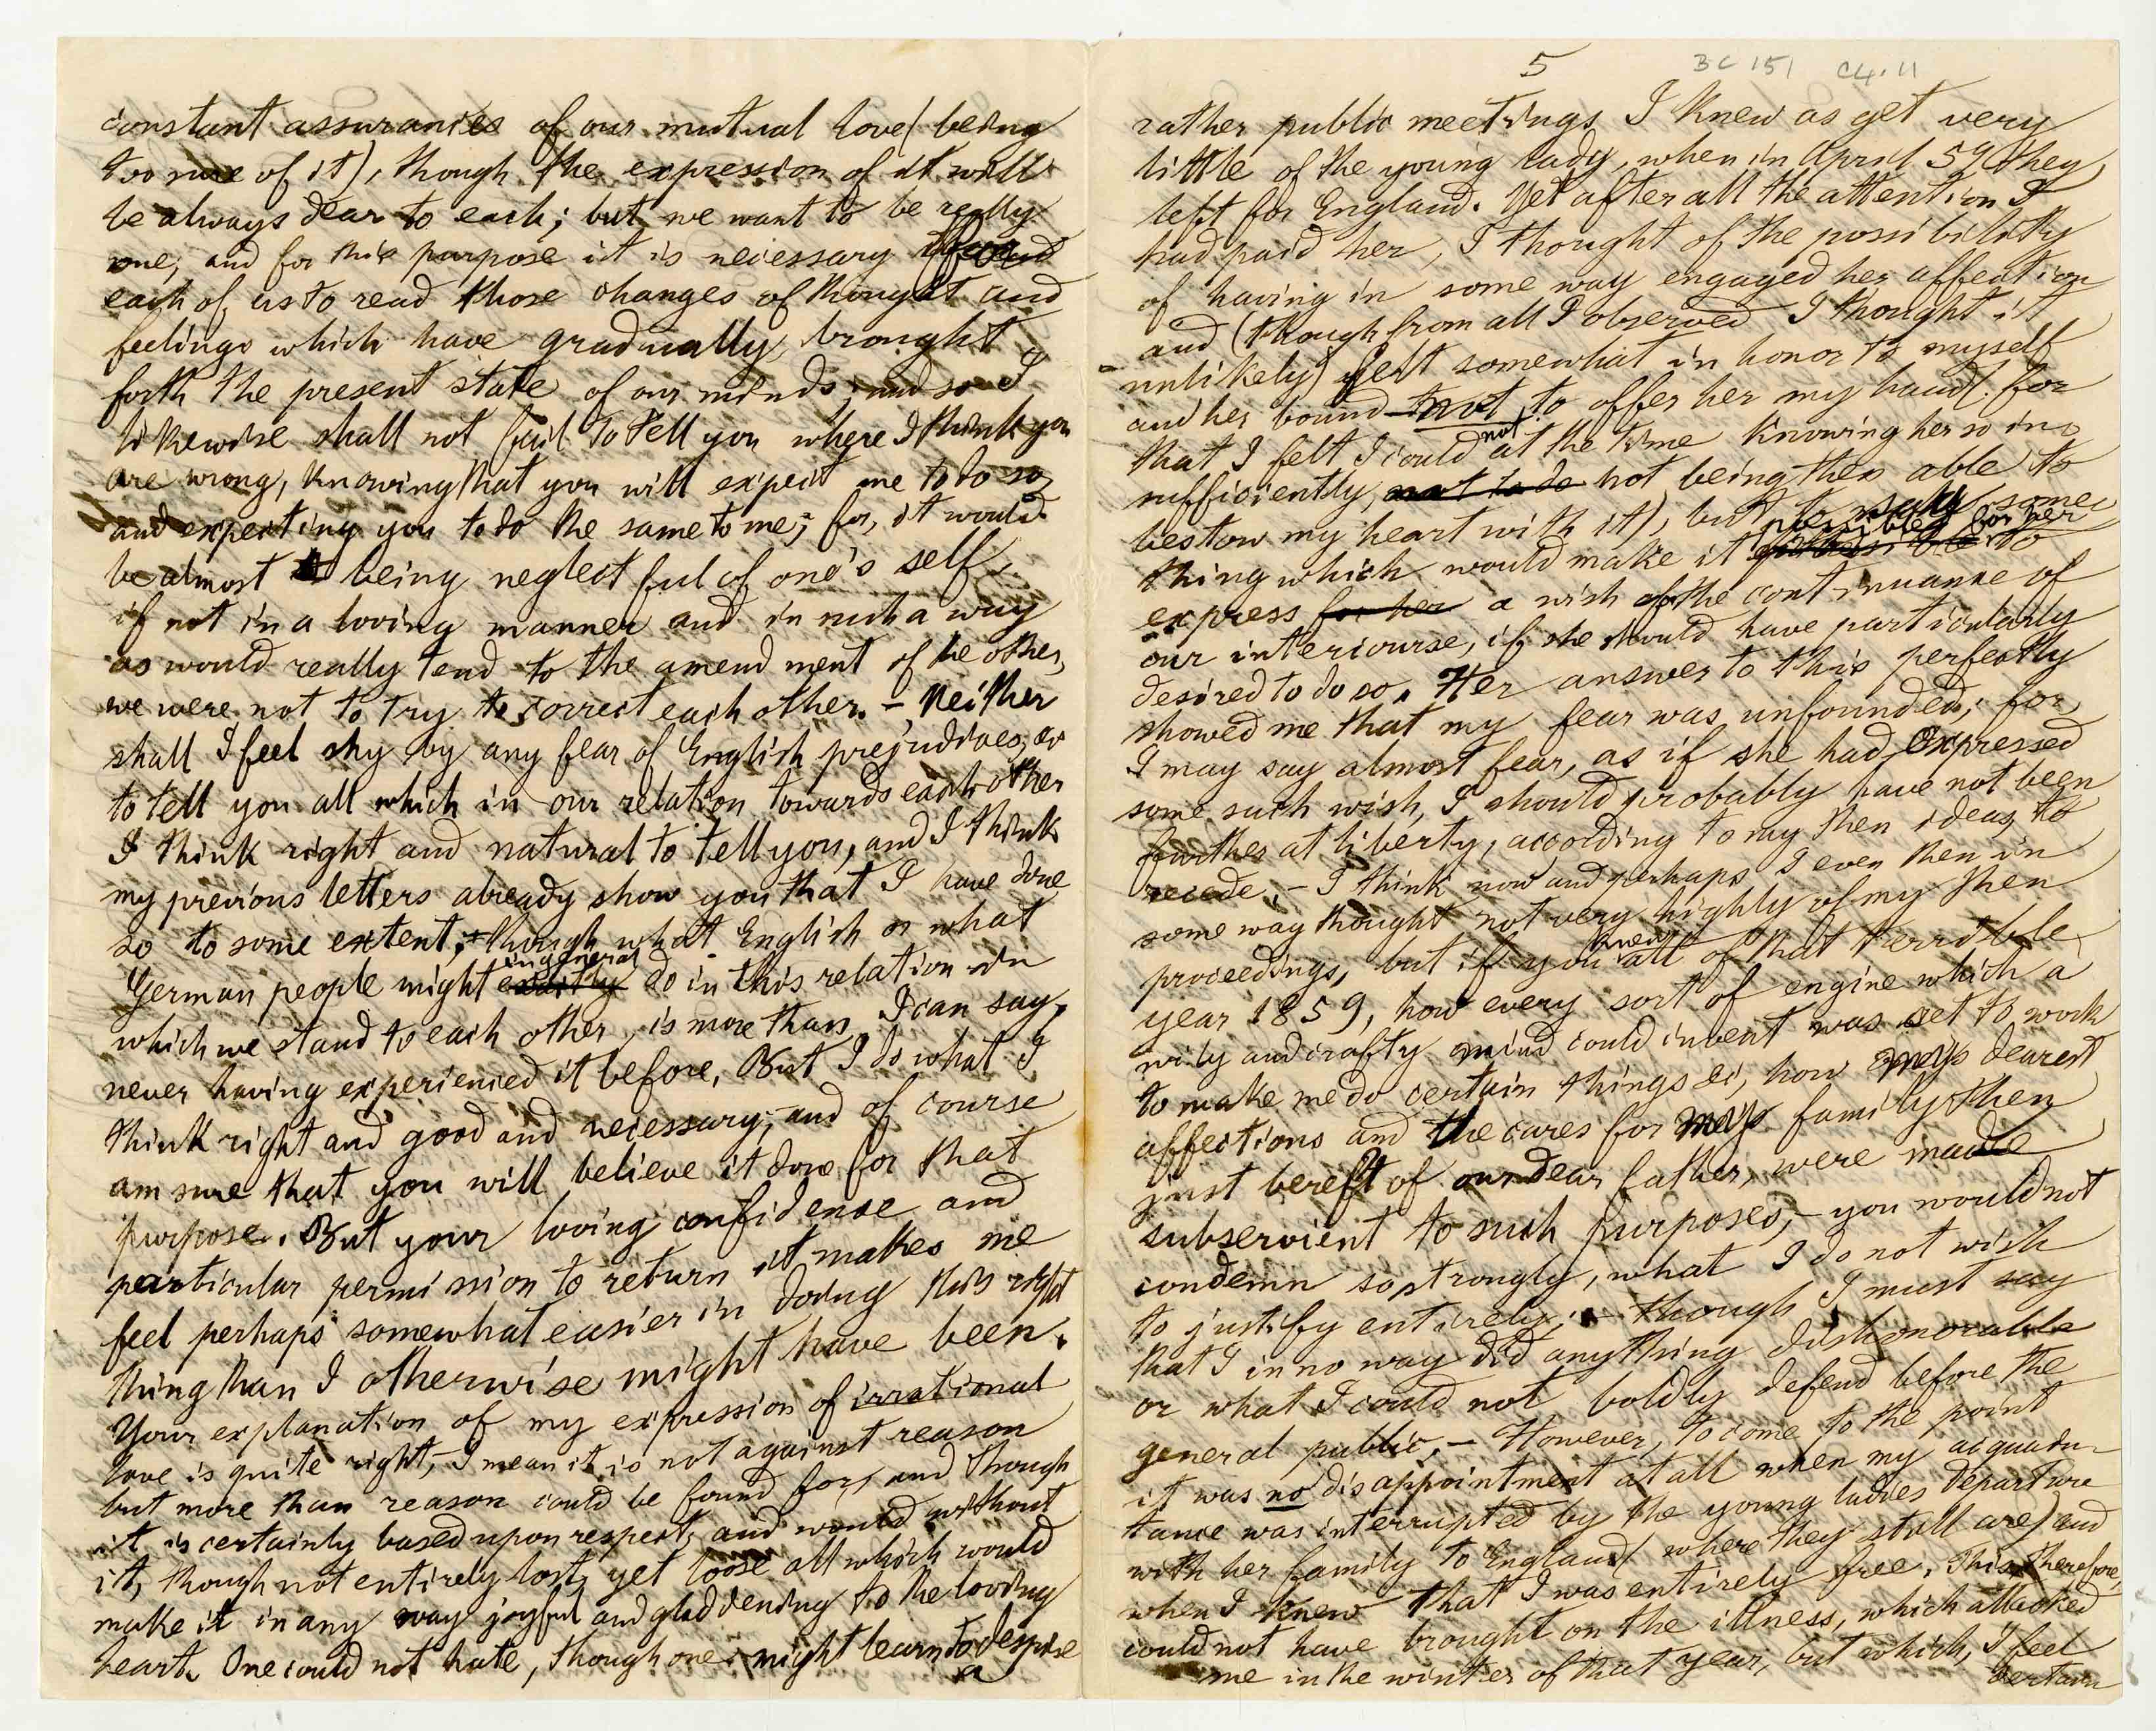 constant assurances of our mutual love (being
too sure of it), though the expression of it will
be always dear to each; but we want to be really
one, and for this purpose it is necessary
each of us to read those changes of thought and
feelings which have gradually brought
forth the present state of our minds; and so I
likewise shall not fail to tell you where I think you
are wrong, knowing that you will expect me to do so,
and expecting you to do the same to me; for, it would
be almost being neglectful of one's self,
if not in a loving manner and in such a way
as would really tend to the amendment of the other,
we were not to try to correct each other. – Neither
shall I feel shy by any fear of English prejudices, or
to tell you all which in our relation towards each other
I think right and natural to tell you, and I think
my previous letters already show you that I have done
so to some extent; though what English or what
German people might in general do in this relation in
which we stand to each other, is more than I can say,
never having experienced it before. But I do what I
think right and good and necessary, and of course
am sure that you will believe it done for that
purpose. But your loving confidence and
particular permission to return it makes me
feel perhaps somewhat easier in doing this right
thing than I otherwise might have been.
Your explanation of my expression of irrational
love is quite right, I mean it is not against reason
but more than reason could be found for, and though
it is certainly based upon respect, and would without
it, though not entirely lost, yet loose all which would
make it in any way joyful and gladdening to the loving
heart. One could not hate, though one might learn to despise
a
5
BC 151 C4.11
rather public meetings I knew as yet very
little of the young lady, when in April 59 they
left for England. Yet after all the attention I
had paid her, I thought of the possibility
of having in some way engaged her affection
and (though from all I observed I thought it
unlikely) felt somewhat in honor to myself
and her bound not to offer her my hand (for
that I felt I could not at the time knowing her so in-
sufficiently, not to do not being then able to
bestow my heart with it), but to say some
thing which would make it possible for her to
express for her a wish of the continuance of
our intercourse, if she should have particularly
desired to do so. Her answer to this perfectly
showed me that my fear was unfounded; for
I may say almost fear, as if she had expressed
some such wish, I should probably have not been
further at liberty, according to my then ideas, to
recede. – I think now and perhaps I even then in
some way thought not very highly of my then
proceedings, but if you knew all of that terrible
year 1859, how every sort of engine which a
wily and crafty mind could invent was set to work
to make me do certain things &c, how my dearest
affections and the cares for my family then
just bereft of our dear father, were made
subservient to such purposes, – you would not
condemn so strongly, what I do not wish
to justify entirely; – though I must say
that I in no way did anything dishonorable
or what I could not boldly defend before the
general public. – However, to come to the point
it was no disappointment at all when my acquain-
tance was interrupted by the young ladies departure
with her family to England (where they still are) and
when I knew that I was entirely free. This therefore,
could not have brought on the illness, which attacked
me in the winter of that year, but which, I feel
certain